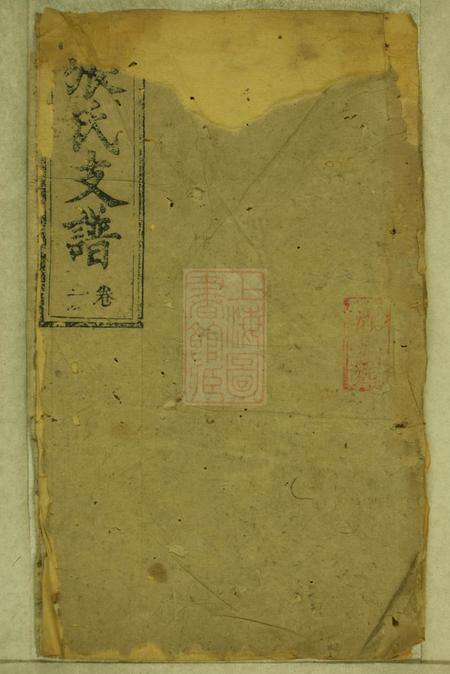 氏支譜
卷一
上海圖
書館藏